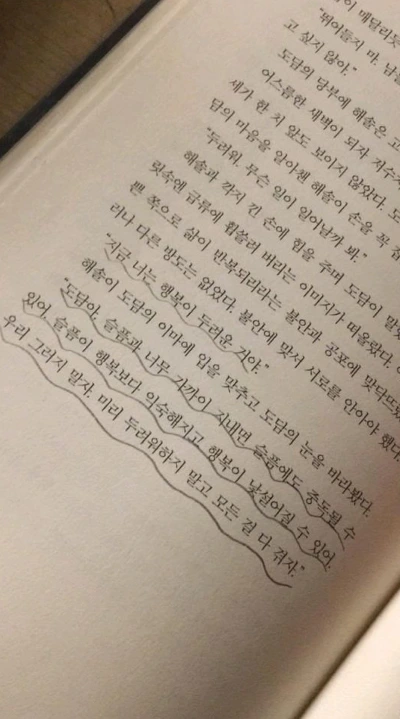 이 매달리듯
"뛰어들지 마. 남을
고 싶지 않아."
도담의 당부에 해솔은 고
어스름한 새벽이 되자 저수지
세가 한 치 앞도 보이지 않았다. 도
담의 마음을 알아챈 해솔이 손을 꼭 잡
"두려워. 무슨 일이 일어날까 봐."
해솔과 깍지 낀 손에 힘을 주며 도담이 말했
릿속엔 급류에 휩쓸려 버리는 이미지가 떠올랐다.
쁜 쪽으로 삶이 반복되리라는 불안과 공포에 맞닥뜨렸
러나 다른 방도는 없었다. 불안에 맞서 서로를 안아야 했다
"지금 너는 행복이 두려운 거야."
해솔이 도담의 이마에 입을 맞추고 도담의 눈을 바라봤다.
"도담아, 슬픔과 너무 가까이 지내면 슬픔에도 중독될 수
있어. 슬픔이 행복보다 익숙해지고 행복이 낯설어질 수 있어.
우리 그러지 말자. 미리 두려워하지 말고 모든 걸 다 겪자."